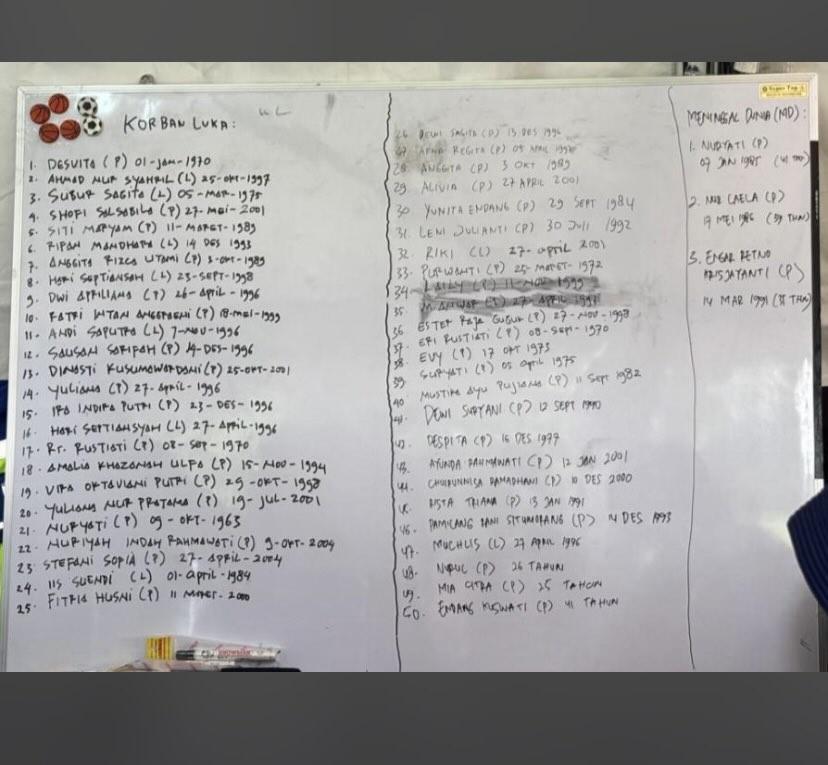 KORBAN LUKA:
1. DESVITA (P) 01-JAN-1970
2. AHMAD NUR SYAHRIL (L) 25-OKT-1997
3. SUBUR SAGITA (L) 05-MAR-1975
4. SHOFI SALSABILA (P) 27-MEI-2001
5. SITI MARYAM (P) 11-MARET-1989
6. RIPAN MANDHARA (L) 14 DES 1993
7. ANGGITA RIZCA UTAMI (P) 3-OKT-1989
8. HARI SEPTIANSAH (L) 23-SEPT-1998
9. DWI APRILIANA (P) 26-APRIL-1996
10. FATRI INTAN ANGGRAENI (P) 18-MEI-1999
11. ANDI SAPUTRA (L) 7-NOV-1996
12. SAUSAN SARIPAH (P) 14-DES-1996
13. DINASTI KUSUMAWARDANI (P) 25-OKT-2001
14. YULIANA (P) 27-APRIL-1996
15. IRA INDIRA PUTRI (P) 23-DES-1996
16. HARI SEPTIANSYAH (L) 27-APRIL-1996
17. Rr. RUSTIATI (P) 08-SEP-1970
18. AMALIA KHAZANAH ULFA (P) 15-NOV-1994
19. VIRA OKTAVIANI PUTRI (P) 29-OKT-1998
20. YULIANA NUR PRATAMA (P) 19-JUL-2001
21. NURYATI (P) 09-OKT-1963
22. NURIYAH INDAH RAHMAWATI (P) 9-OKT-2004
23. STEFANI SOPIA (P) 27-APRIL-2004
24. IIS SUENDI (L) 01-APRIL-1984
25. FITRIA HUSNI (P) 11 MARET-2000
26 DEWI SAGITA (P) 13 DES 1996
27 REGITA (P) 09 APRIL
28. ANGGITA (P) 3 OKT 1989
29 ALIVIA (P) 27 APRIL 2001
30. YUNITA ENDANG (P) 29 SEPT 1984
31. LENI JULIANTI (P) 30 JULI 1992
32. RIKI (L) 27-APRIL 2001
33. PURWANTI (P) 25-MARET-1972
34. LAILY (P) 11-NOV-1999
35. (P) 27-APRIL
36 ESTER (P) 27-NOV-1998
37. ERI RUSTIATI (P) 08-SEPT-1970
38. EVY (P) 17 OKT 1973
39. SURYATI (P) 05 APRIL 1975
40 MUSTIKA AYU PUJIANA (P) 11 SEPT 1982
41. DEWI SURYANI (P) 12 SEPT
42. DESPITA (P) 16 DES 1977
43. AYUNDA RAHMAWATI (P) 12 JAN 2001
44. CHOIRUNNISA RAMADHANI (P) 10 DES 2000
45. RISTA TRIANA (P) 13 JAN 1991
46. PAMILANG RANI SITUMORANG (P) 14 DES 1993
47. MUCHLIS (L) 27 APRIL 1996
48. NURUL (P) 26 TAHUN
49. MIA CITRA (P) 25 TAHUN
50. ENDANG KUSWATI (P) 41 TAHUN
MENINGGAL DUNIA (MD):
1. NURYATI (P)
07 JAN 1985 (41 THN)
2. NUR LAELA (P)
17 MEI 1986 (39 THN)
3. ENGAR RETNO
KRISJAYANTI (P)
14 MAR 1991